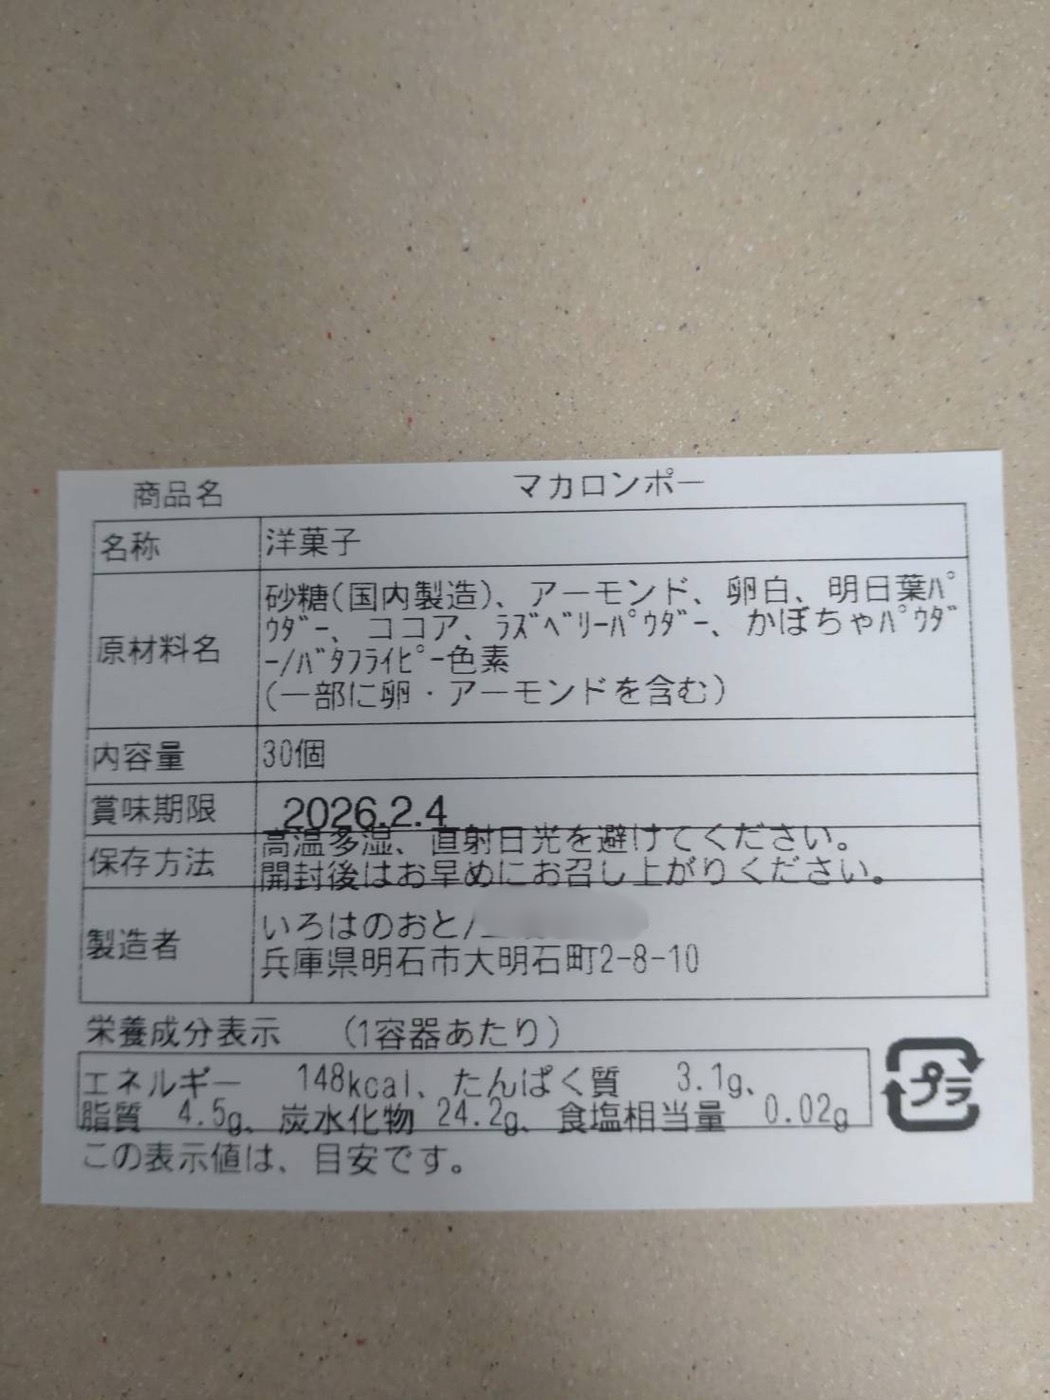 商品名 マカロンポー
名称 洋菓子
原材料名 砂糖(国内製造)、アーモンド、卵白、明日葉ﾊﾟ
ｳﾀﾞｰ、ココア、ﾗｽﾞﾍﾞﾘｰﾊﾟｳﾀﾞｰ、かぼちゃﾊﾟｳﾀﾞ
ｰ/ﾊﾞﾀﾌﾗｲﾋﾟｰ色素
(一部に卵・アーモンドを含む)
内容量 30個
賞味期限 2026.2.4
保存方法 高温多湿、直射日光を避けてください。
開封後はお早めにお召し上がりください。
製造者 いろはのおと/
兵庫県明石市大明石町2-8-10
栄養成分表示 (1容器あたり)
エネルギー 148kcal、たんぱく質 3.1g、
脂質 4.5g、炭水化物 24.2g、食塩相当量 0.02g
この表示値は、目安です。
プラ